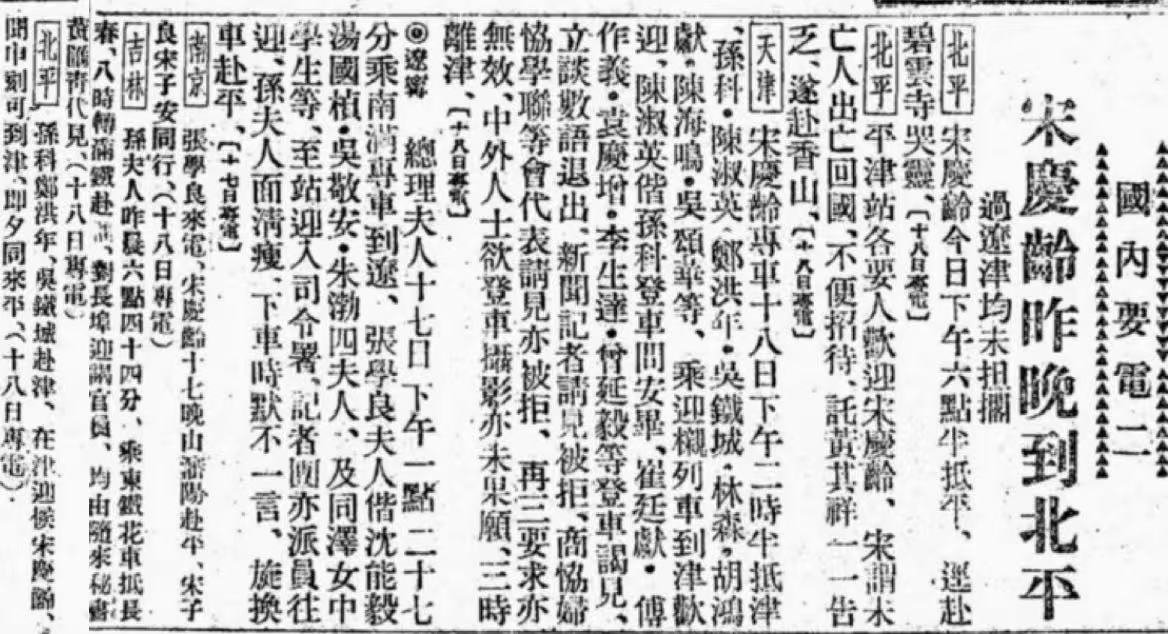 國內要電二
宋慶齡昨晚到北平
過遼津均未担擱
北平 宋慶齡今日下午六點半抵平、逕赴
碧雲寺哭靈、【十八日專電】
北平 平津站各要人歡迎宋慶齡、宋謂未
亡人出亡回國、不便招待、託黃其祥一一告
乏、遂赴香山、【十八日專電】
天津 宋慶齡專車十八日下午二時半抵津
、孫科・陳淑英・鄭洪年・吳鐵城・林森・胡鴻
猷・陳海鳴・吳頌華等、乘迎櫬列車到津歡
迎、陳淑英偕孫科登車問安畢、崔廷獻・傅
作義・袁慶增・李生達・曾延毅等登車謁見、
立談數語退出、新聞記者請見被拒、商恊婦
恊學聯等會代表請見亦被拒、再三要求亦
無效、中外人士欲登車攝影亦未果願、三時
離津、【十八日專電】
◎遼寧 總理夫人十七日下午一點二十七
分乘南滿專車到遼、張學良夫人偕沈能毅
湯國楨・吳敬安・朱渤四夫人、及同澤女中
學生等、至站迎入司令署、記者團亦派員往
迎、孫夫人面淸瘦、下車時默不一言、旋換
車赴平、【十七日專電】
南京 張學良來電、宋慶齡十七晚由瀋陽赴平、宋子
良宋子安同行、（十八日專電）
吉林 孫夫人昨晨六點四十四分、乘東鐵花車抵長
春、八時轉滿鐵赴、對長埠迎謁官員、均由隨來秘書
黃滙靑代見（十八日專電）
北平 孫科鄭洪年、吳鐵城赴津、在津迎候宋慶齡、
聞中刻可到津、即夕同來平、（十八日專電）